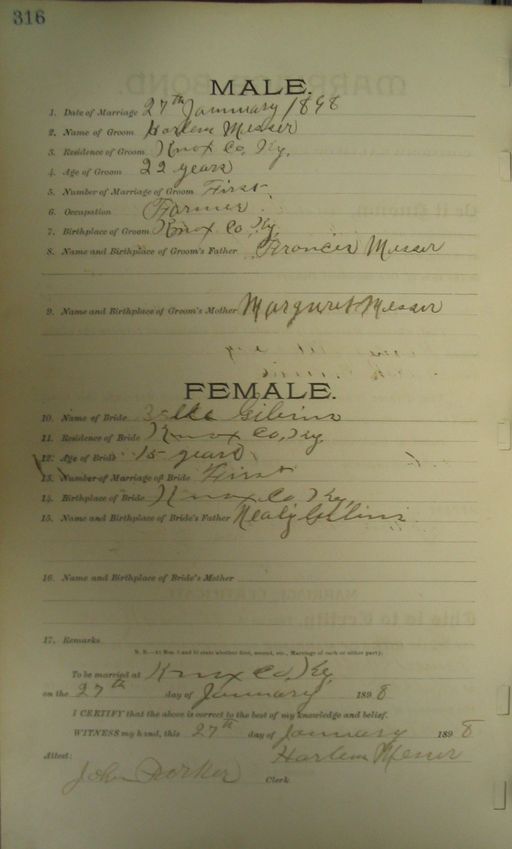 316
MALE.
1. Date of Marriage 27th January 1898
2. Name of Groom Harlem Messer
3. Residence of Groom Knox Co, Ky.
4. Age of Groom 22 years
5. Number of Marriage of Groom First.
6. Occupation Farmer
7. Birthplace of Groom Knox Co Ky.
8. Name and Birthplace of Groom's Father Francis Messer
9. Name and Birthplace of Groom's Mother Margaret Messer
FEMALE.
10. Name of Bride
11. Residence of Bride Knox Co, Ky
12. Age of Bride 15 years
13. Number of Marriage of Bride First
14. Birthplace of Bride Knox Co. Ky.
15. Name and Birthplace of Bride's Father
16. Name and Birthplace of Bride's Mother
17. Remarks
N. B.—At Nos. 5 and 13 state whether first, second, etc., Marriage of each or either party.
To be married at Knox Co, Ky.
on the 27th day of January 1898
I CERTIFY that the above is correct to the best of my knowledge and belief.
WITNESS my hand, this 27th day of January 1898
Attest: Harlem Messer
John Parker Clerk